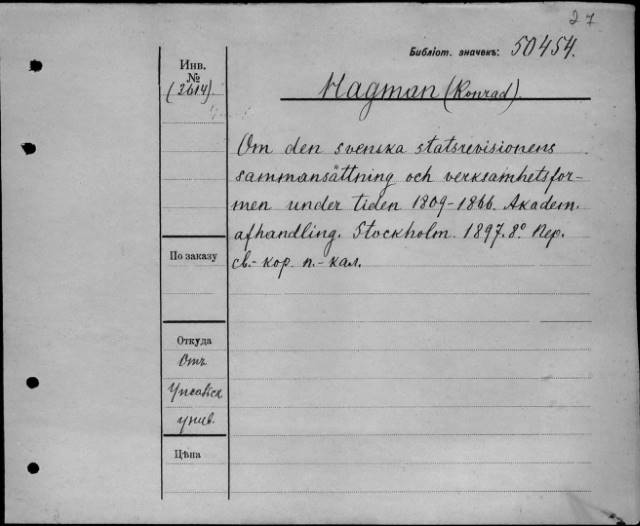 27
Библіот. значекъ: 50454.
Инв.
№
(2614).
Hagman (Konrad).
Om den svenska statsrevisionens
sammansättning och verksamhetsfor-
men under tiden 1809-1866. Akadem.
afhandling. Stockholm. 1897. 8° Пер.
св.- кор. п.- кал.
По заказу
Откуда
Отъ
Упсальск
унив.
Цѣна